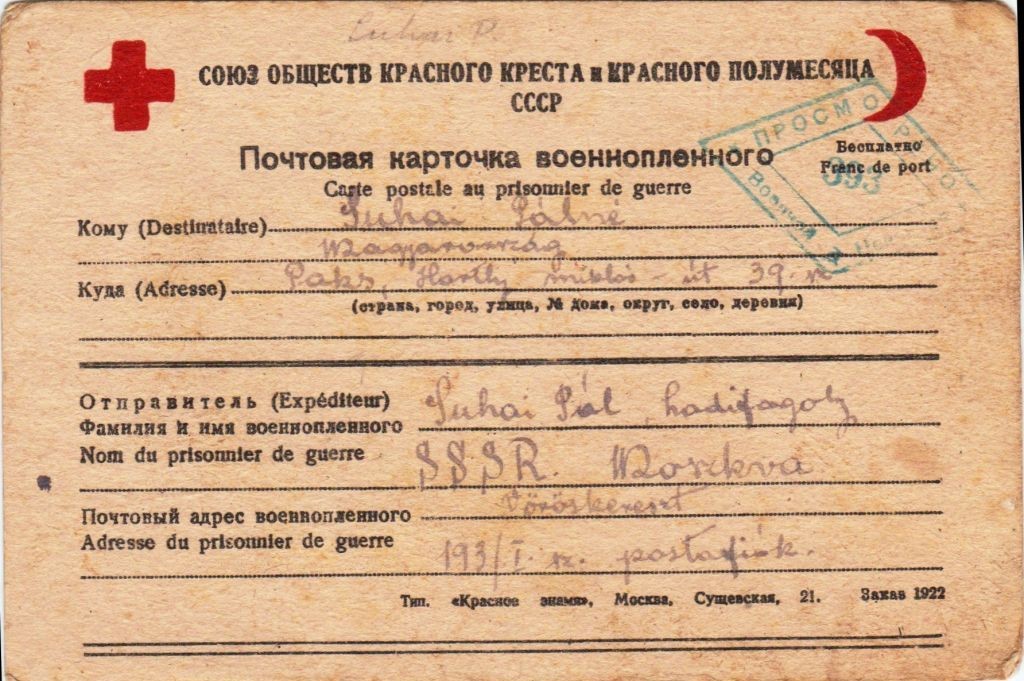 Suhai P.
СОЮЗ ОБЩЕСТВ КРАСНОГО КРЕСТА и КРАСНОГО ПОЛУМЕСЯЦА
СССР
ПРОСМОТРЕНО
393
Почтовая карточка военнопленного
Бесплатно
Franc de port
Carte postale au prisonnier de guerre
Кому (Destinataire) Suhai Pálné
Magyarország
Куда (Adresse) Paks, Horthy miklós-út 39.
(страна, город, улица, № дома, округ, село, деревня)
Отправитель (Expéditeur)
Фамилия и имя военнопленного Suhai Pál, hadifagoly
Nom du prisonnier de guerre SSSR. Moszkva
Vöröskereszt
Почтовый адрес военнопленного
Adresse du prisonnier de guerre 193/I postafiók.
Тип. «Красное знамя», Москва, Сущевская, 21. Заказ 1922